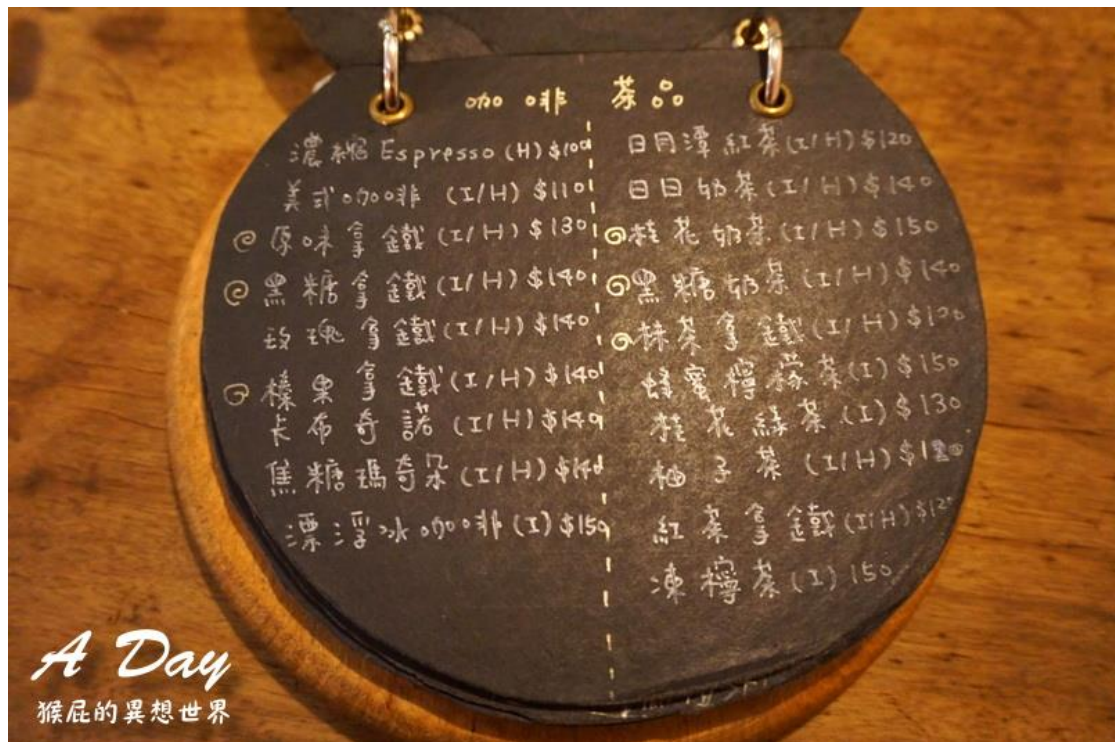 咖啡 茶品
濃縮 Espresso (H) $100
美式咖啡 (I/H) $110
原味拿鐵 (I/H) $130
黑糖拿鐵 (I/H) $140
玫瑰拿鐵 (I/H) $140
榛果拿鐵 (I/H) $140
卡布奇諾 (I/H) $140
焦糖瑪奇朵 (I/H) $140
漂浮冰咖啡 (I) $150
日月潭紅茶 (I/H) $120
日日奶茶 (I/H) $140
桂花奶茶 (I/H) $150
黑糖奶茶 (I/H) $140
抹茶拿鐵 (I/H)
蜂蜜檸檬茶 (I) $150
桂花綠茶 (I) $130
柚子茶 (I/H)
紅茶拿鐵 (I/H) $120
凍檸茶 (I) 150
A Day
猴屁的異想世界